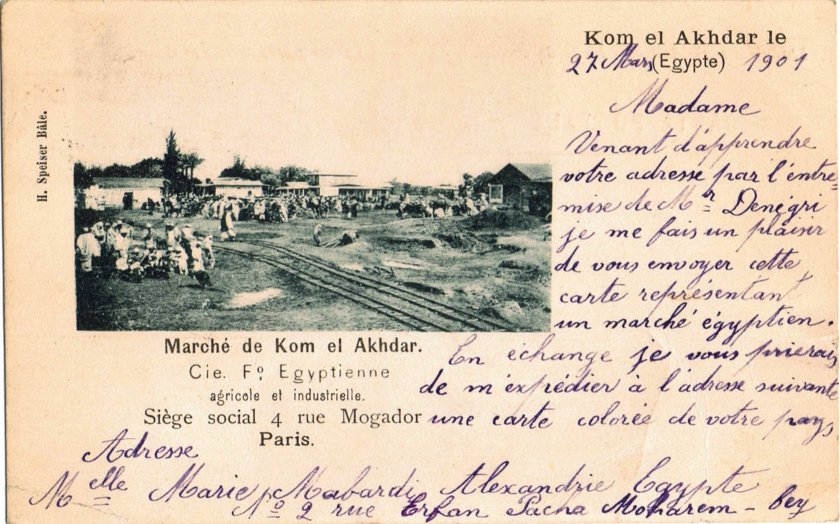 H. Speiser Bâle.
Kom el Akhdar le
27 Mars (Egypte) 1901
Madame
Venant d'apprendre
votre adresse par l'entre
mise de Mr Denégri
je me fais un plaisir
de vous envoyer cette
carte représentant
un marché égyptien.
En échange je vous prierais
de m'expédier à l'adresse suivante
une carte colorée de votre pays
Marché de Kom el Akhdar.
Cie. Fo Egyptienne
agricole et industrielle.
Siège social 4 rue Mogador
Paris.
Adresse
Melle Marie Mabardi Alexandrie Egypte
No 2 rue Erfan Pacha Moharem-bey